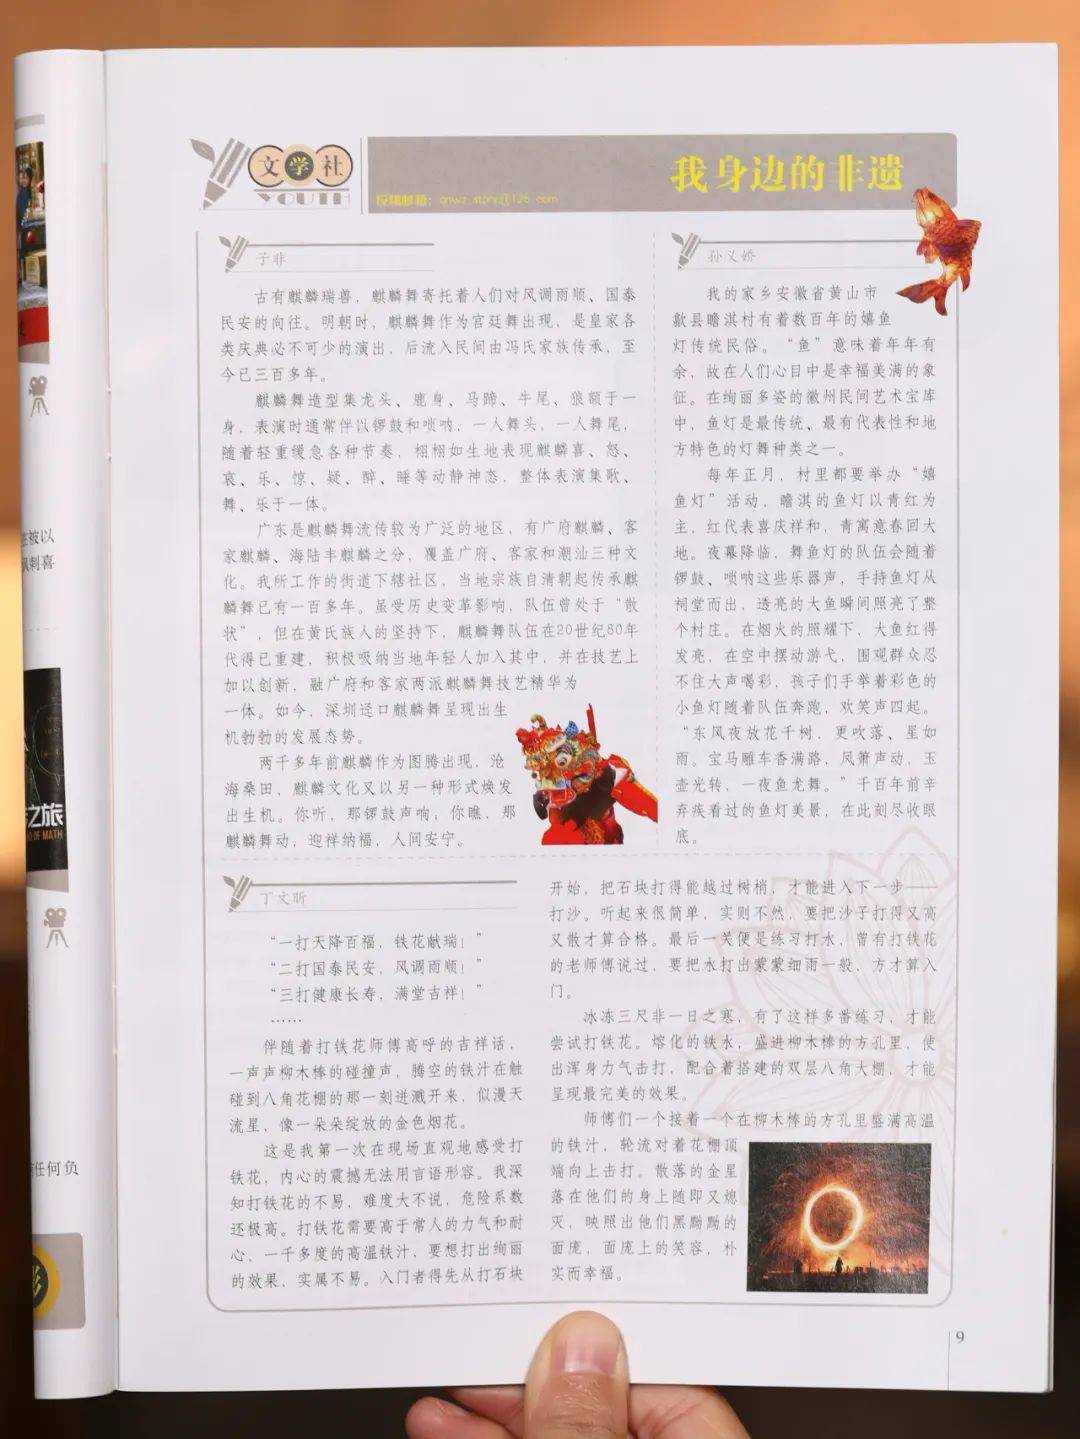 文学社
YOUTH
我身边的非遗
投稿邮箱：qnwz_story@126.com
子非
古有麒麟瑞兽，麒麟舞寄托着人们对风调雨顺、国泰
民安的向往。明朝时，麒麟舞作为宫廷舞出现，是皇家各
类庆典必不可少的演出，后流入民间由冯氏家族传承，至
今已三百多年。
麒麟舞造型集龙头、鹿身、马蹄、牛尾、狼额于一
身，表演时通常伴以锣鼓和唢呐，一人舞头，一人舞尾，
随着轻重缓急各种节奏，栩栩如生地表现麒麟喜、怒、
哀、乐、惊、疑、醉、睡等动静神态，整体表演集歌、
舞、乐于一体。
广东是麒麟舞流传较为广泛的地区，有广府麒麟、客
家麒麟、海陆丰麒麟之分，覆盖广府、客家和潮汕三种文
化。我所工作的街道下辖社区，当地宗族自清朝起传承麒
麟舞已有一百多年。虽受历史变革影响，队伍曾处于“散
状”，但在黄氏族人的坚持下，麒麟舞队伍在20世纪80年
代得已重建，积极吸纳当地年轻人加入其中，并在技艺上
加以创新，融广府和客家两派麒麟舞技艺精华为
一体。如今，深圳迳口麒麟舞呈现出生
机勃勃的发展态势。
两千多年前麒麟作为图腾出现，沧
海桑田，麒麟文化又以另一种形式焕发
出生机。你听，那锣鼓声响；你瞧，那
麒麟舞动，迎祥纳福，人间安宁。
孙义娇
我的家乡安徽省黄山市
歙县瞻淇村有着数百年的嬉鱼
灯传统民俗。“鱼”意味着年年有
余，故在人们心目中是幸福美满的象
征。在绚丽多姿的徽州民间艺术宝库
中，鱼灯是最传统、最有代表性和地
方特色的灯舞种类之一。
每年正月，村里都要举办“嬉
鱼灯”活动，瞻淇的鱼灯以青红为
主，红代表喜庆祥和，青寓意春回大
地。夜幕降临，舞鱼灯的队伍会随着
锣鼓、唢呐这些乐器声，手持鱼灯从
祠堂而出，透亮的大鱼瞬间照亮了整
个村庄。在烟火的照耀下，大鱼红得
发亮，在空中摆动游弋，围观群众忍
不住大声喝彩，孩子们手举着彩色的
小鱼灯随着队伍奔跑，欢笑声四起。
“东风夜放花千树，更吹落、星如
雨。宝马雕车香满路，凤箫声动，玉
壶光转，一夜鱼龙舞。”千百年前辛
弃疾看过的鱼灯美景，在此刻尽收眼
底。
丁文昕
“一打天降百福，铁花献瑞！”
“二打国泰民安，风调雨顺！”
“三打健康长寿，满堂吉祥！”
……
伴随着打铁花师傅高呼的吉祥话，
一声声柳木棒的碰撞声，腾空的铁汁在触
碰到八角花棚的那一刻迸溅开来，似漫天
流星，像一朵朵绽放的金色烟花。
这是我第一次在现场直观地感受打
铁花，内心的震撼无法用言语形容。我深
知打铁花的不易，难度大不说，危险系数
还极高。打铁花需要高于常人的力气和耐
心，一千多度的高温铁汁，要想打出绚丽
的效果，实属不易。入门者得先从打石块
开始，把石块打得能越过树梢，才能进入下一步——
打沙。听起来很简单，实则不然，要把沙子打得又高
又散才算合格。最后一关便是练习打水，曾有打铁花
的老师傅说过，要把水打出蒙蒙细雨一般，方才算入
门。
冰冻三尺非一日之寒，有了这样多番练习，才能
尝试打铁花。熔化的铁水，盛进柳木棒的方孔里，使
出浑身力气击打，配合着搭建的双层八角大棚，才能
呈现最完美的效果。
师傅们一个接着一个在柳木棒的方孔里盛满高温
的铁汁，轮流对着花棚顶
端向上击打。散落的金星
落在他们的身上随即又熄
灭，映照出他们黑黝黝的
面庞，面庞上的笑容，朴
实而幸福。
9
被以
讽刺喜
之旅
OF MATH
任何负
影